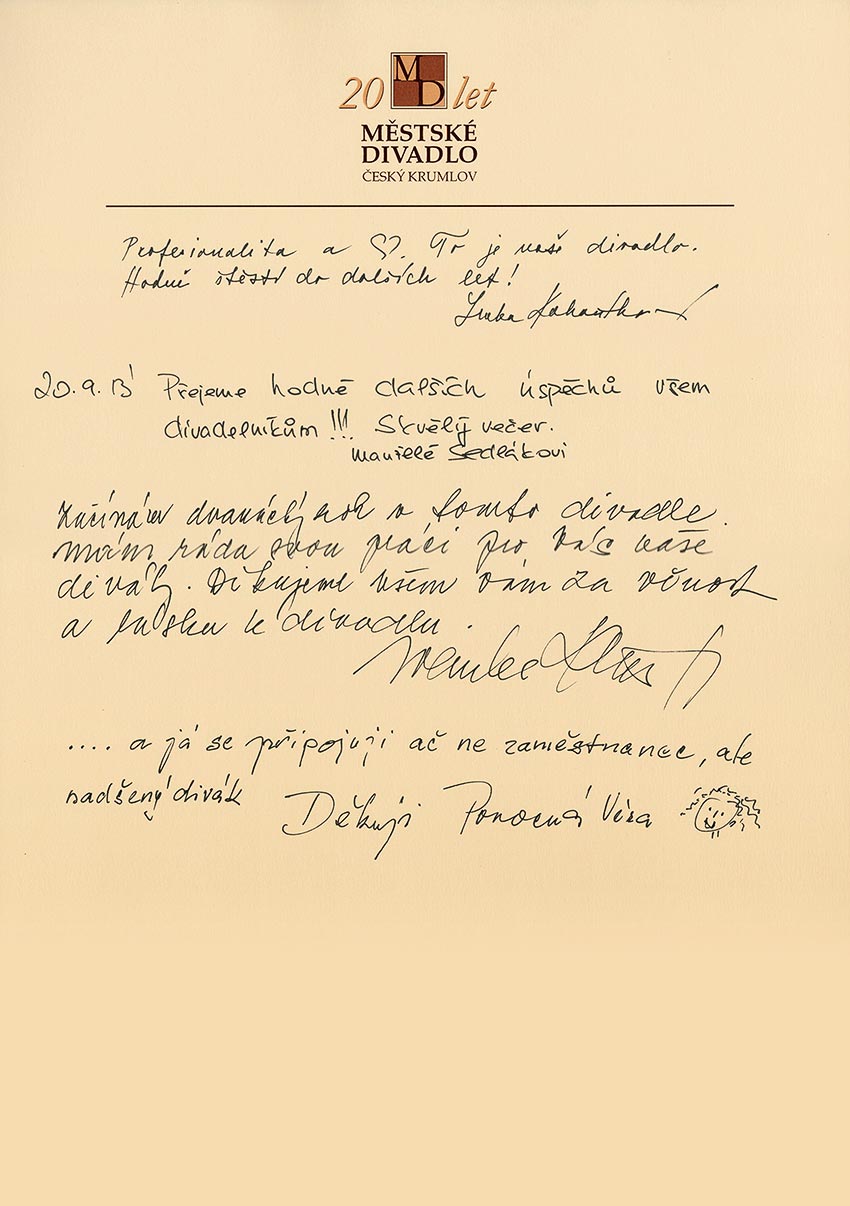 20 MD let
MĚSTSKÉ
DIVADLO
ČESKÝ KRUMLOV
Profesionalita a ♡. To je vaše divadlo.
Hodně štěstí do dalších let!
20.9.13 Přejeme hodně dalších úspěchů všem
divadelníkům!!! Skvělý večer.
manželé Sedlákovi
Začínám dvanáctý rok v tomto divadle.
mám ráda svou práci pro Vás naše
diváky. Děkujeme všem vám za věrnost
a lásku k divadlu.
.... a já se připojuji ač ne zaměstnanec, ale
nadšený divák
Děkuji Ponocná Věra